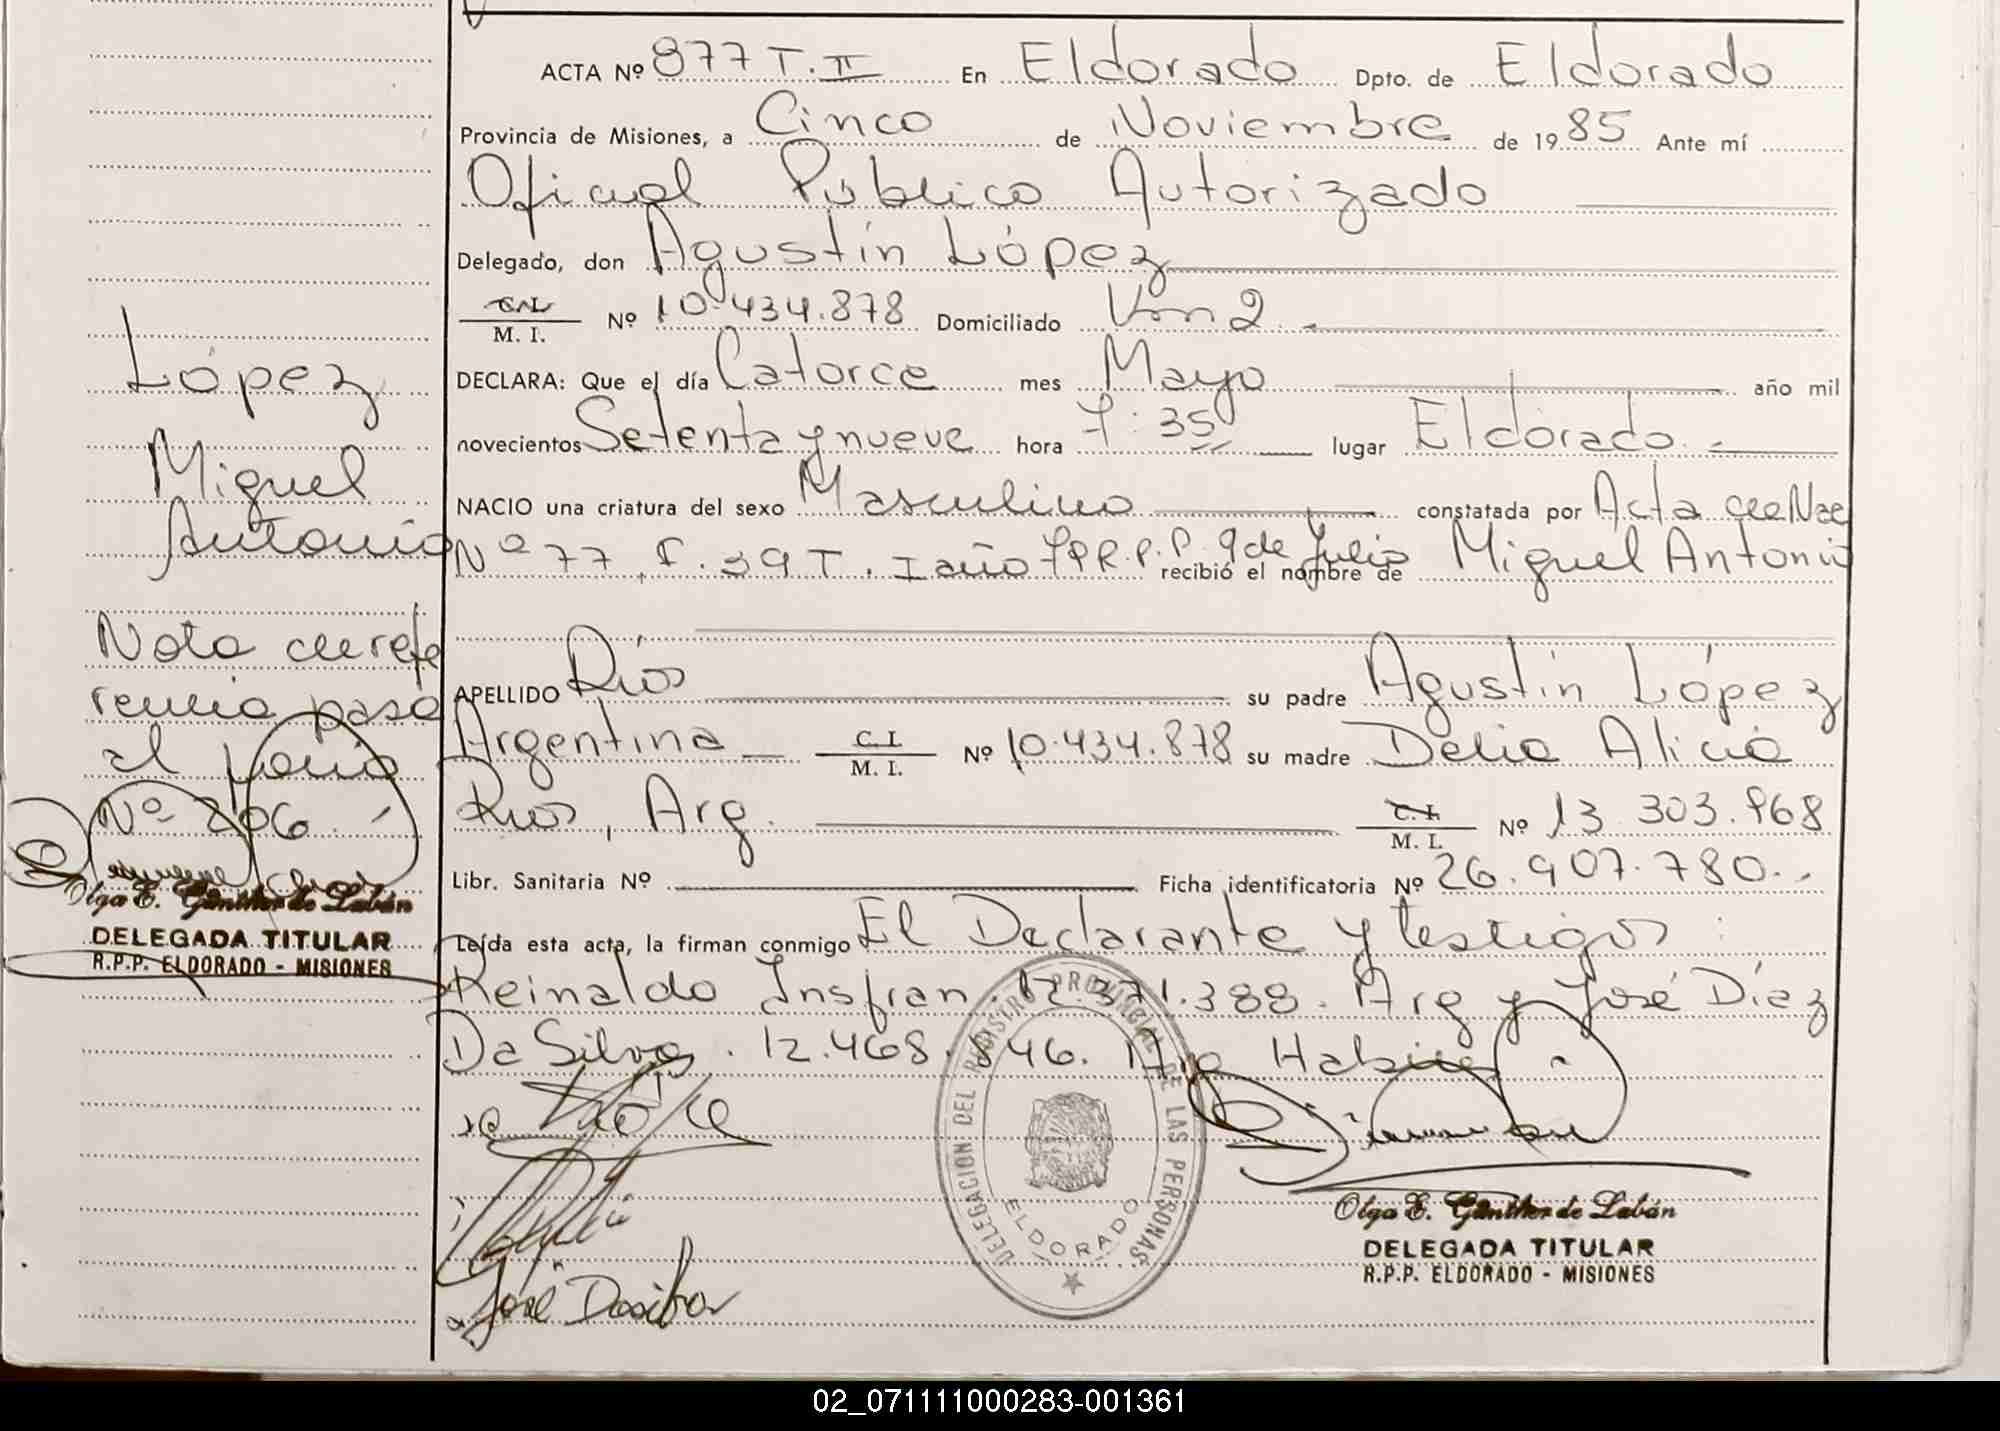 ACTA Nº 877 T. II En Eldorado Dpto. de Eldorado
Provincia de Misiones, a Cinco de Noviembre de 1985 Ante mí
Oficial Público Autorizado
Delegado, don Agustín López
C.I. M. I. Nº 10.434.878 Domiciliado Km 2
DECLARA: Que el día Catorce mes Mayo año mil
novecientos Setenta y nueve hora 7:35 lugar Eldorado
NACIO una criatura del sexo Masculino constatada por Acta de Nac
Nº 77 F. 39 T. I año R.P.P. 9 de Julio recibió el nombre de Miguel Antonio
APELLIDO Ríos su padre Agustín López
Argentina C.I. M. I. Nº 10.434.878 su madre Delia Alicia
Rios, Arg. C.I. M. I. Nº 13.303.968
Libr. Sanitaria Nº Ficha identificatoria Nº 26.907.780
Leída esta acta, la firman conmigo El Declarante y testigos:
Reinaldo Insfran. 12.371.388. Arg y José Díaz
Da Silva. 12.468.846. Arg Habiles
López
Miguel
Antonio
Nota de refe
rencia pasa
al folio
Nº 206
Olga E. Günther de Labán
DELEGADA TITULAR
R.P.P. ELDORADO - MISIONES
DELEGACION DEL REGISTRO PROVINCIAL DE LAS PERSONAS
ELDORADO
José Dasilva
Olga E. Günther de Labán
DELEGADA TITULAR
R.P.P. ELDORADO - MISIONES
02_071111000283-001361